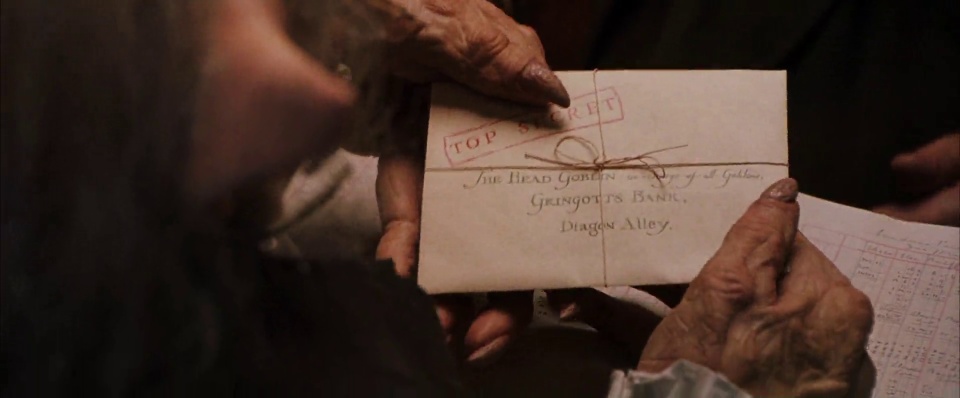 TOP SECRET
The Head Goblin in charge of all Goblins,
Gringotts Bank,
Diagon Alley.